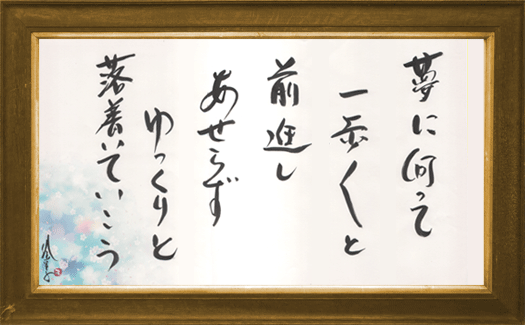 夢に向って
一歩〱と
前進し
あせらず
ゆっくりと
落着いていこう